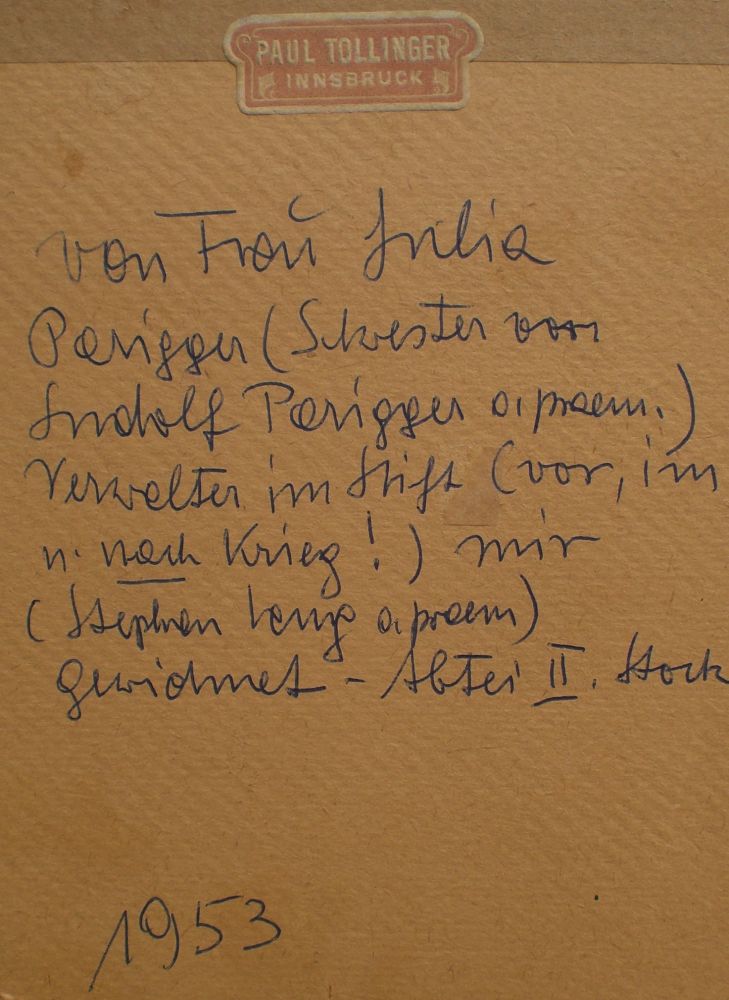 PAUL TOLLINGER
INNSBRUCK
von Frau Julia
Parigger (Schwester von
Ludolf Parigger o. praem.)
Verwalter im Stift (vor, im
u. nach Krieg!) mir
(Stephan Lang o. praem)
gewidmet - Abtei II. Stock
1953